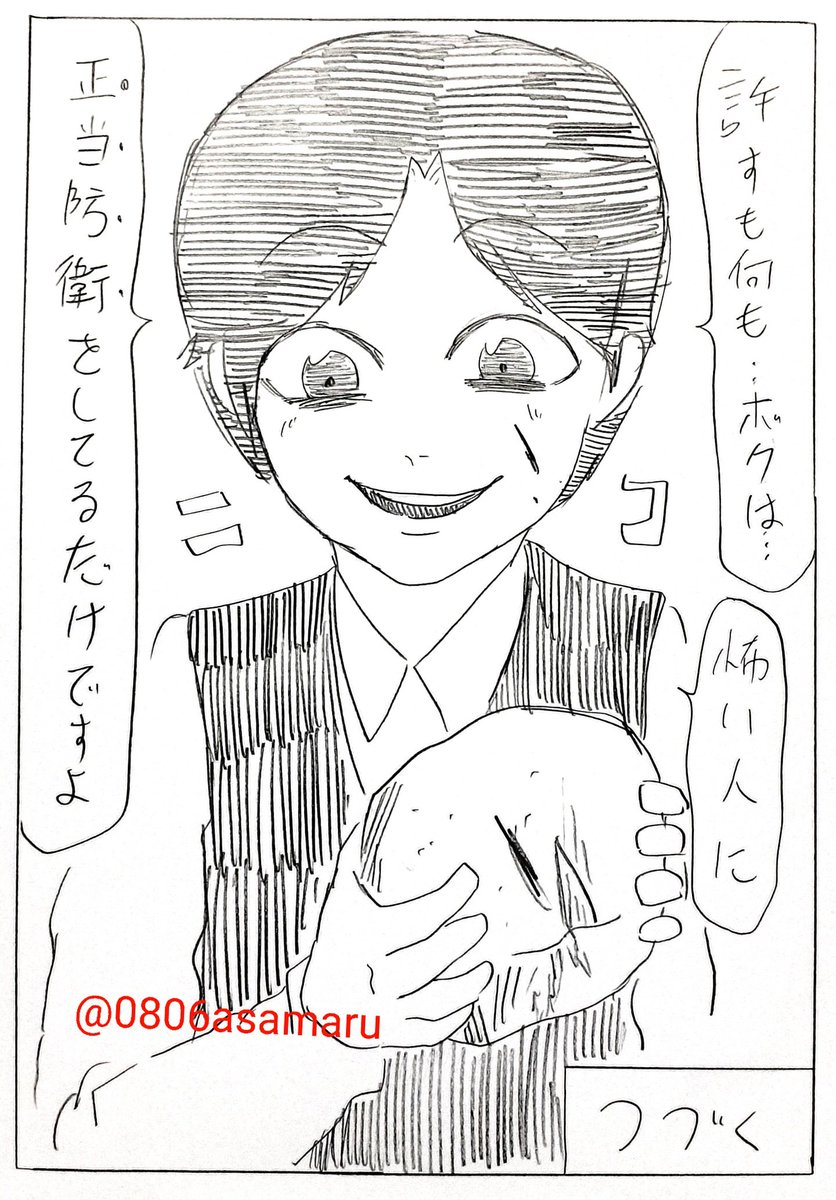 許すも何も‥ボクは…
怖い人に
正当防衛をしてるだけですよ
ニコ
@0806asamaru
つづく